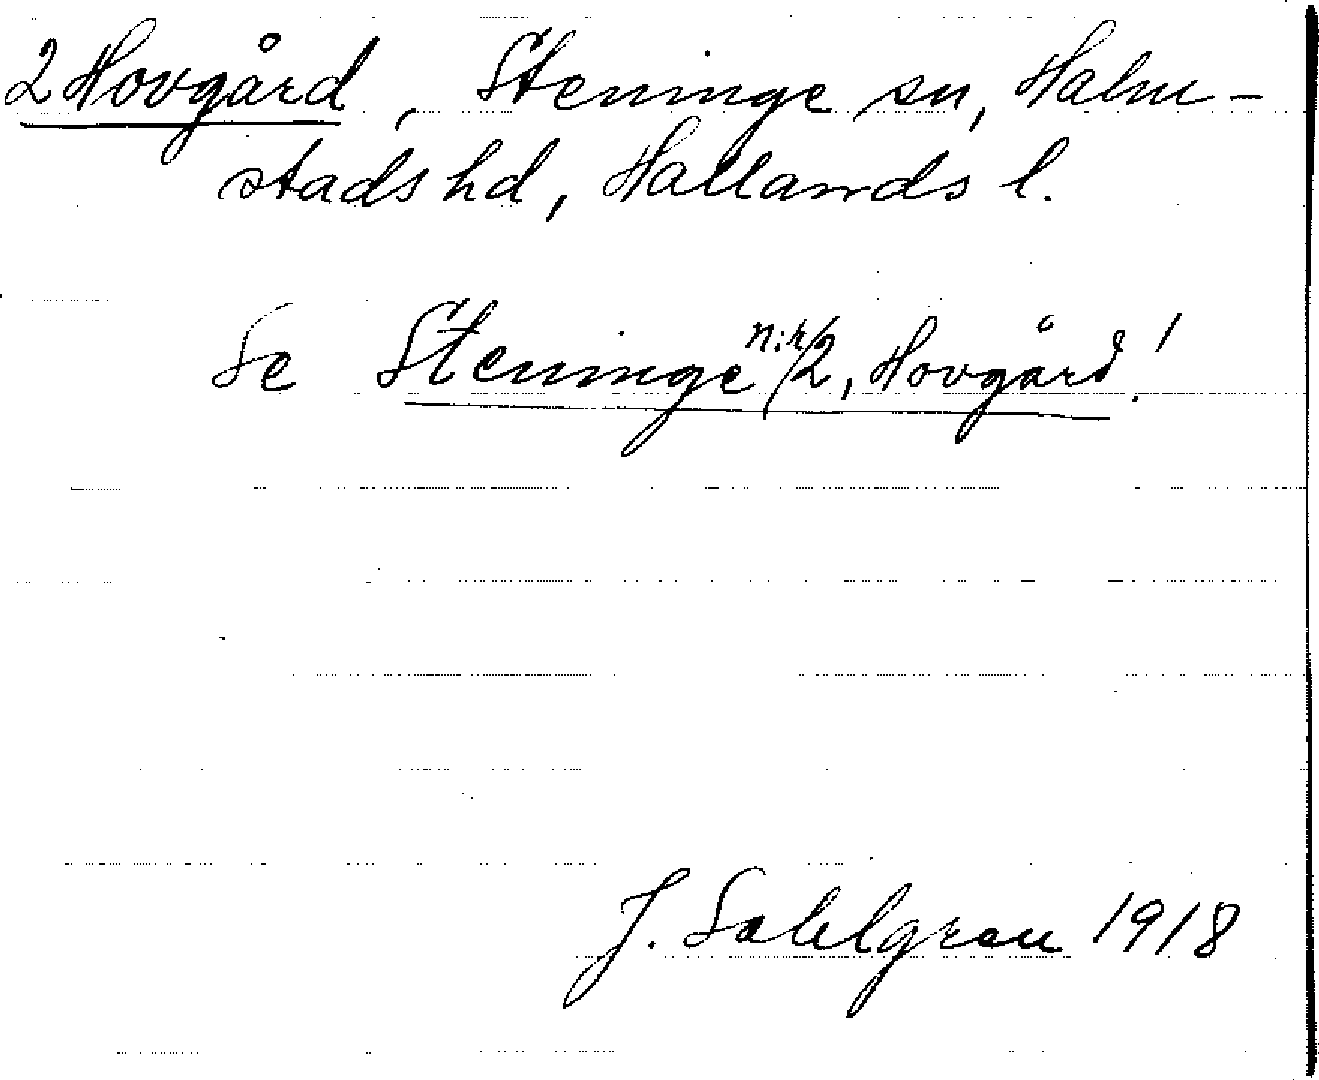 2 Hovgård, Steninge sn, Halm-
stads hd, Hallands l.
Se Steninge n:r 2, Hovgård!
J. Sahlgren 1918